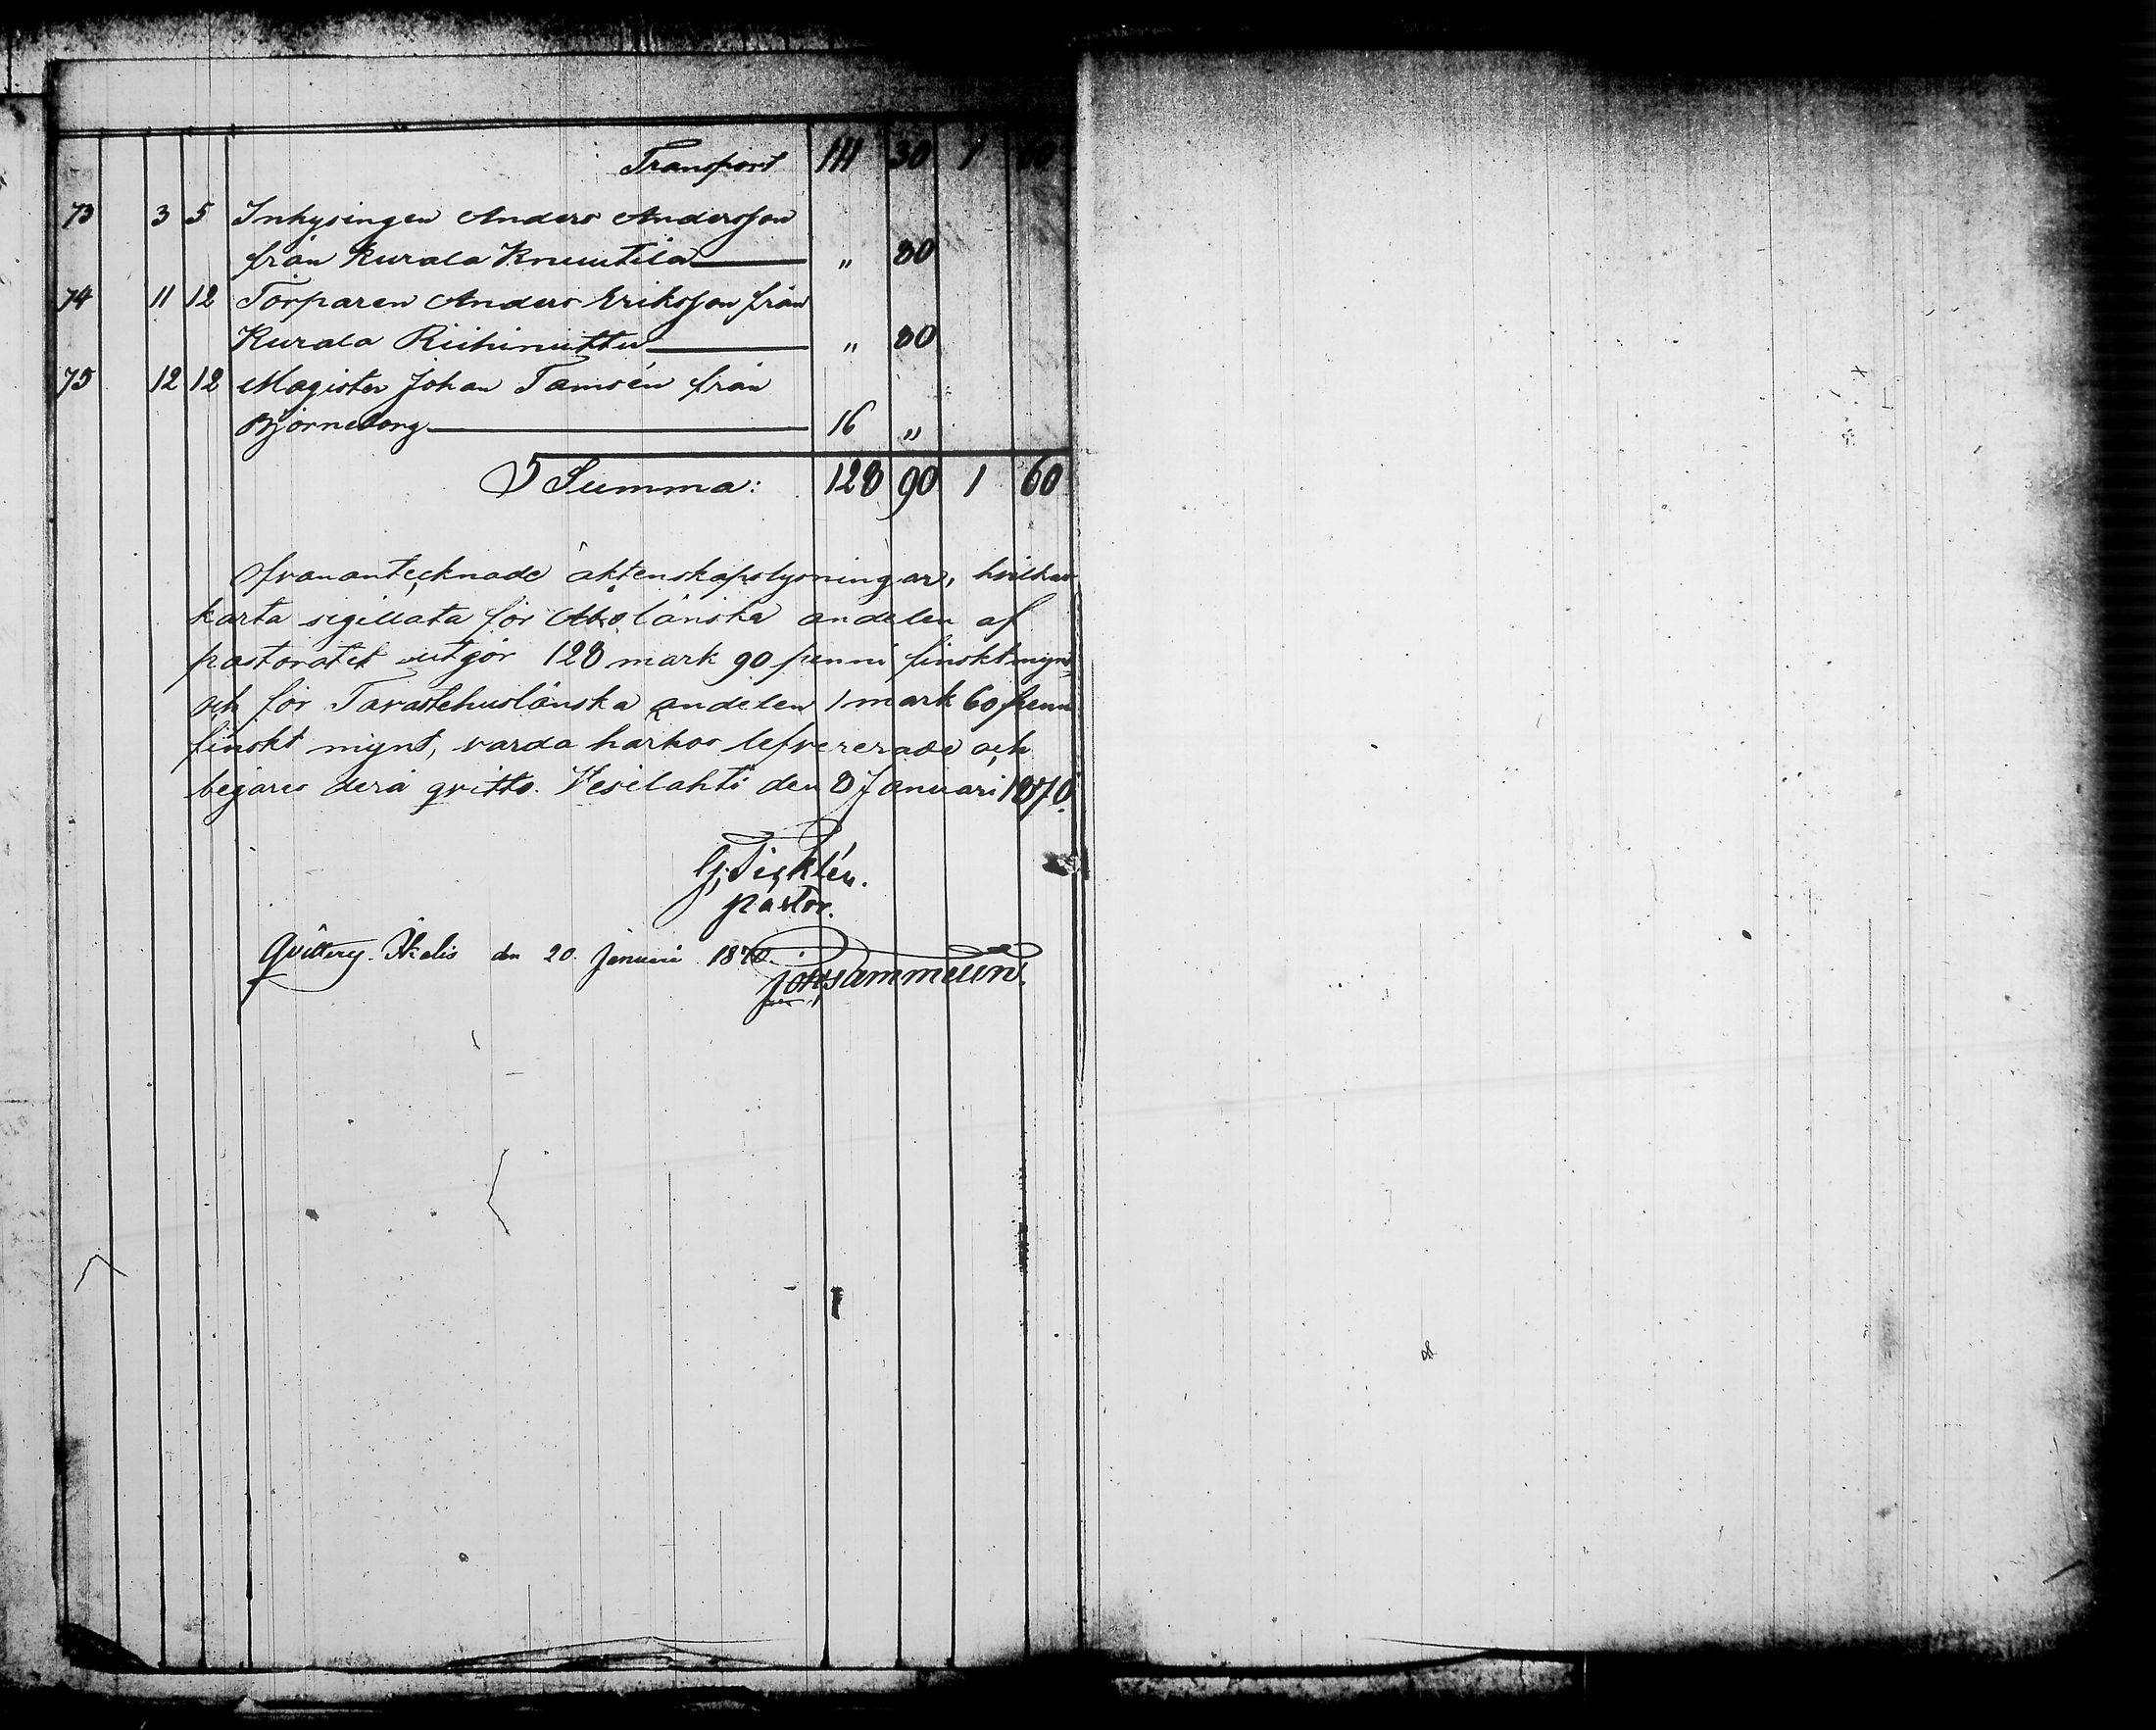 Transport 111 30 1 60
73 3 5 Inhysingen Anders Andersson
från Kurala Knuutila „ 80
74 11 12 Torparen Anders Eriksson från
Kurala Riihiniittu „ 80
75 12 12 Magister Johan Tamsén från
Björneborg 16 „
Summa: 128 90 1 60
Ofvanantecknade äktenskapslysningar, hvilkas
karta sigillata för Åbo länska andelen af
pastoratet utgör 128 mark 90 penni finskt mynt
och för Tavastehuslänska andelen 1 mark 60 penni
finskt mynt, varda härhos lefvererade och
begäres derå qvitto. Vesilahti den 8 Januari 1870.
pastor.
den 20. Januari 1870.